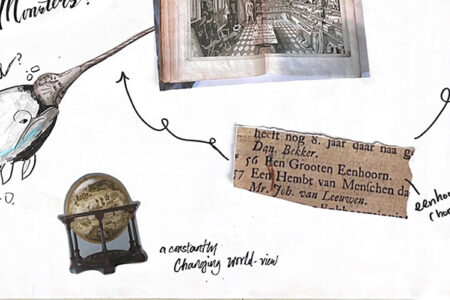 Monsters?
heeft nog 8. jaar daar naa g
Dan. Bekker.
56 Een Grooten Eenhoorn.
57 Een Hembt van Menschen da
Mr. Joh. van Leeuwen.
a constantly
Changing world-view